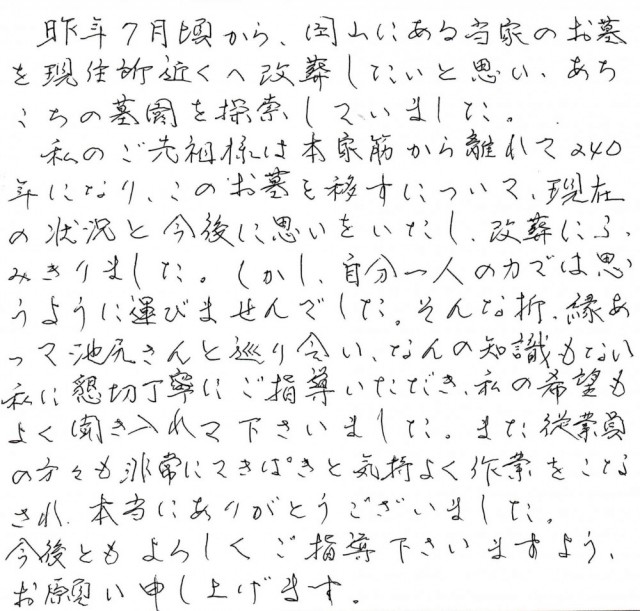 昨年7月頃から、岡山にある当家のお墓
を現住所近くへ改葬したいと思い、あち
こちの墓園を探索していました。
私のご先祖様は本家筋から離れて240
年になり、このお墓を移すについて、現在
の状況と今後に思いをいたし、改葬にふ
みきりました。しかし、自分一人の力では思
うように運びませんでした。そんな折、縁あ
って池尻さんと巡り会い、なんの知識もない
私に懇切丁寧にご指導いただき、私の希望も
よく聞き入れて下さいました。また従業員
の方々も非常にてきぱきと気持よく作業をこな
され、本当にありがとうございました。
今後ともよろしくご指導下さいますよう、
お願い申し上げます。